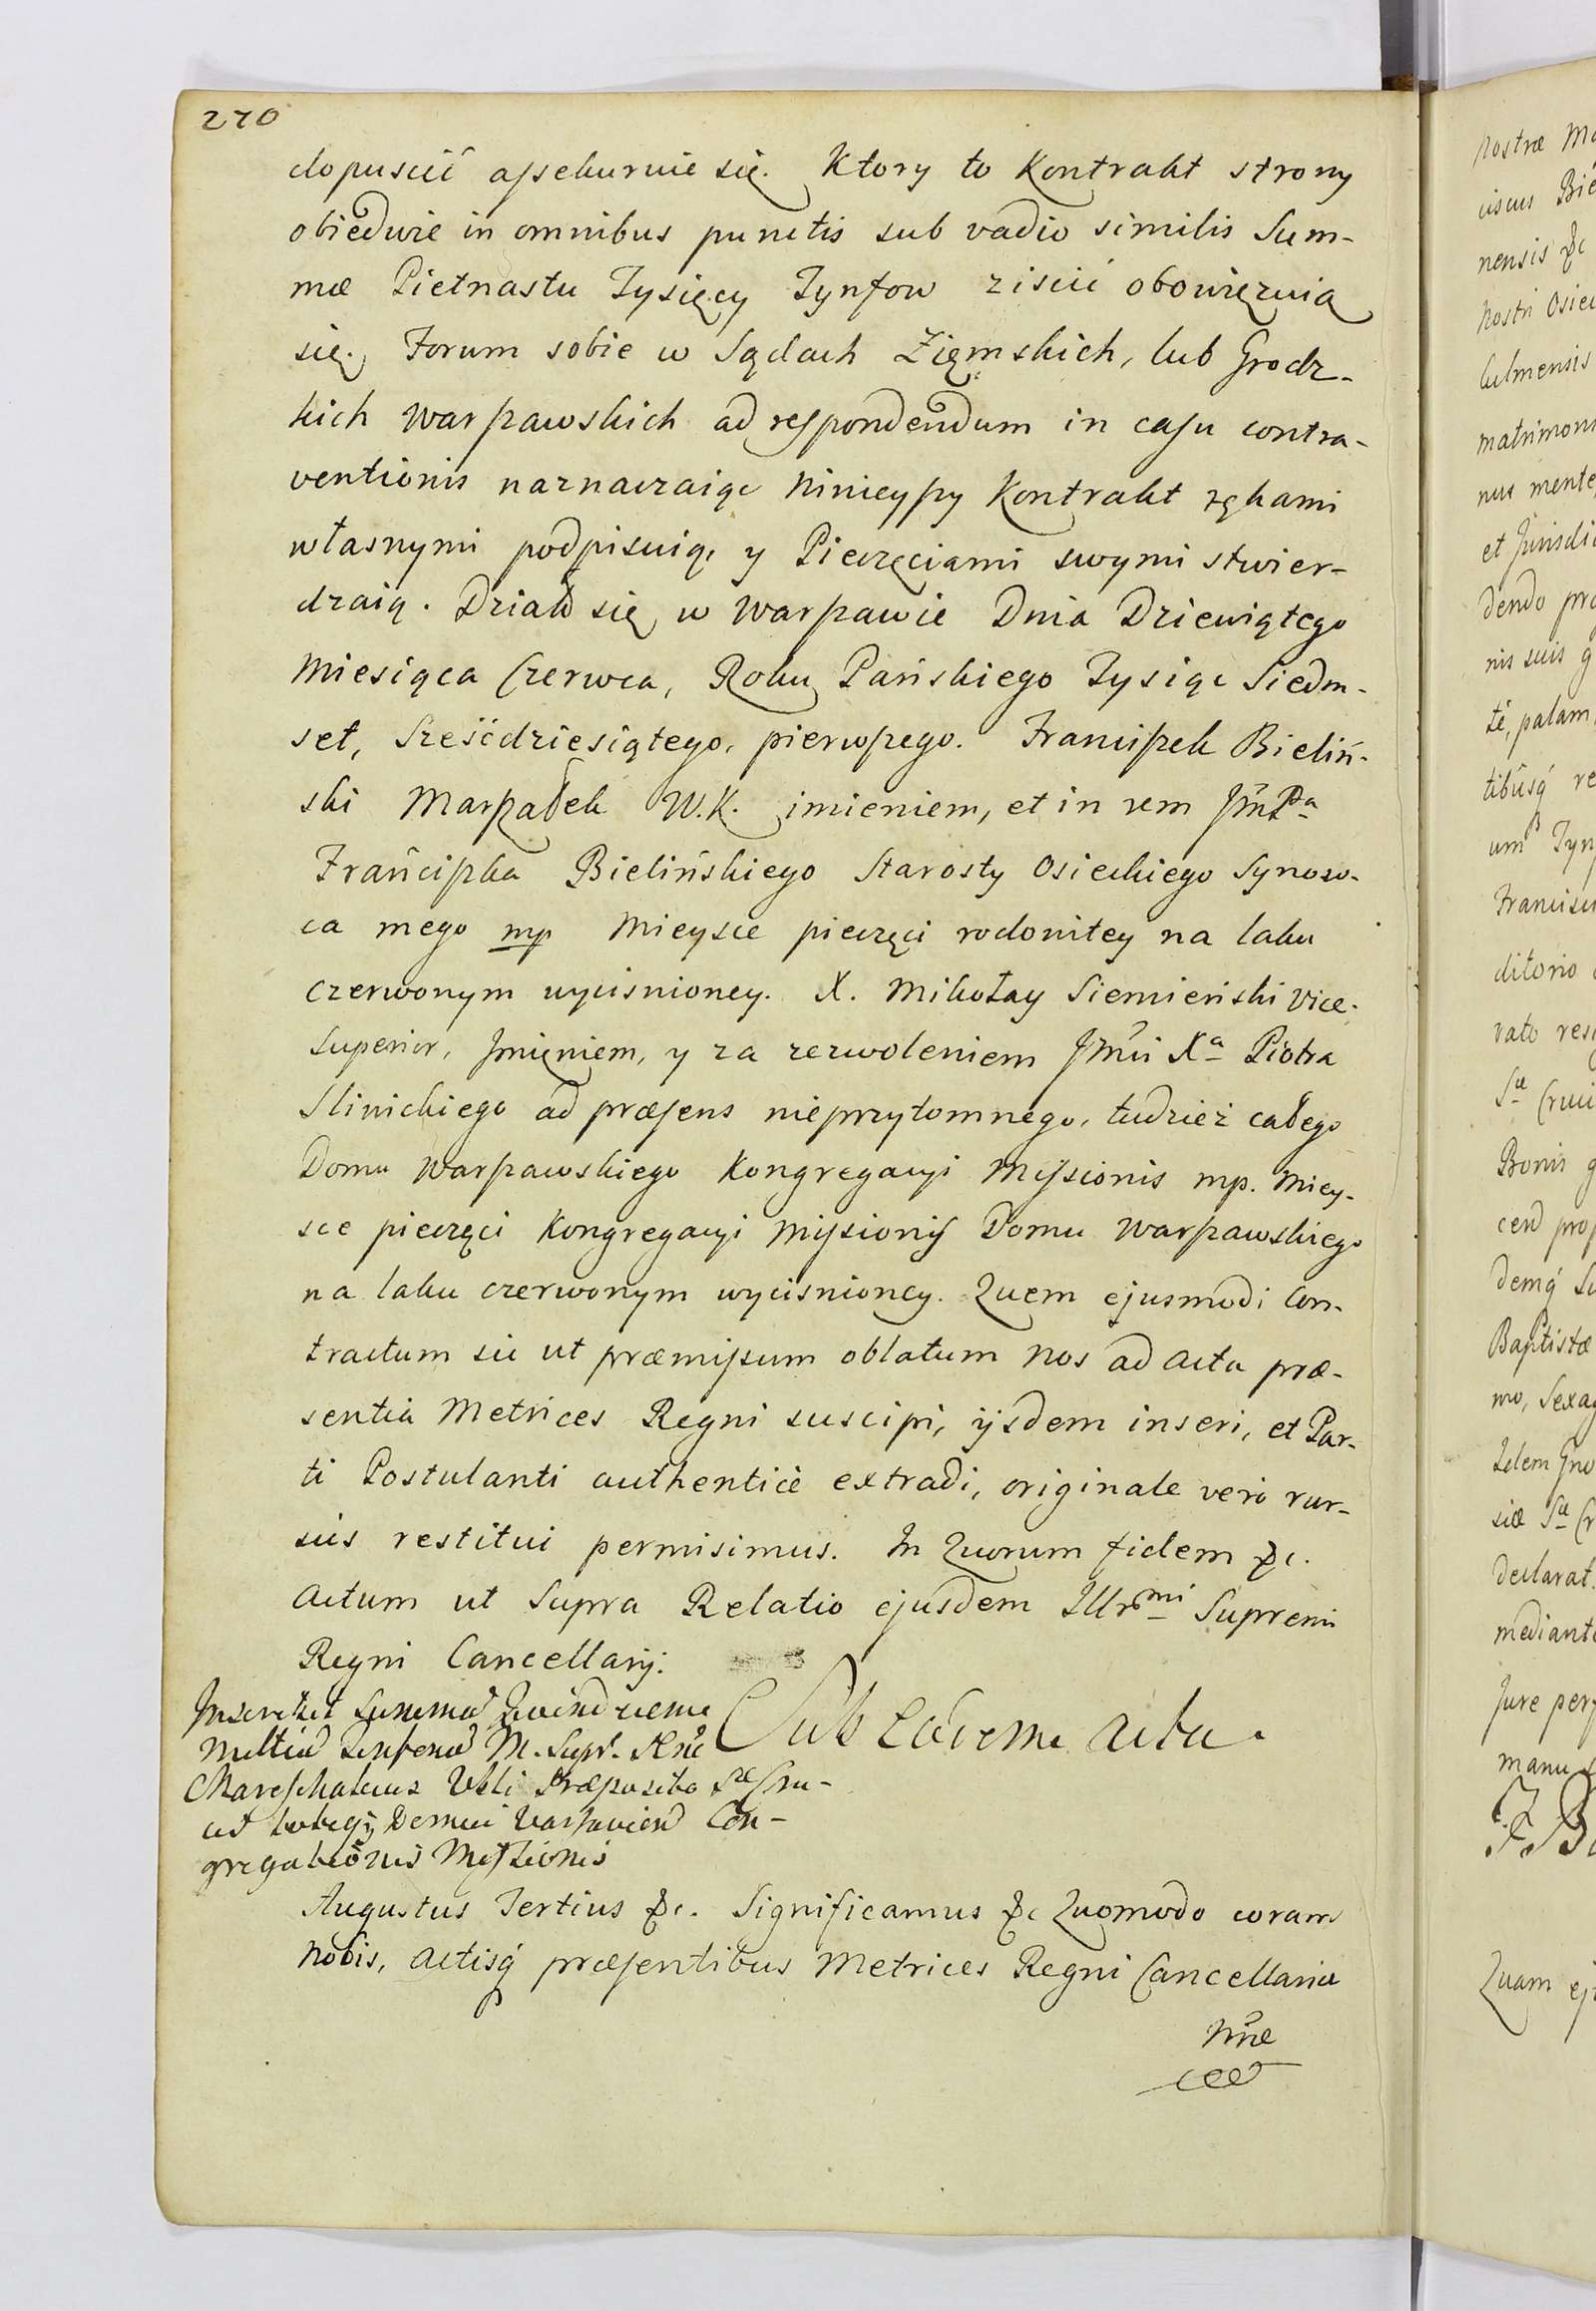 270
dopuscić assekuruie się. Ktory to Kontrakt strony
obiedwie in omnibus punctis sub vadio similis Sum-
mæ Pietnastu Tysięcy Tynfow ziscić obowięzuią
się. Forum sobie w Sądach Ziemskich, lub Grodz-
kich Warszawskich ad respondendum in casu contra-
ventionis naznaczaiąc Ninieyszy Kontrakt rękami
własnymi podpisuią, y Pieczęciami swymi stwier-
dzaią. Działo się w Warszawie Dnia Dziewiątego
Miesiąca Czerwca, Roku Pańskiego Tysiąc Siedm-
set, Sześćdziesiątego, pierwszego. Franciszek Bieliń-
ski Marszałek W.K. imieniem, et in rem JmPa
Franciszka Bielińskiego Starosty Osieckiego Synow-
ca mego mp Mieysce pieczęci rodowitey na laku
czerwonym wycisnioney. X. Mikołay Siemieński Vice-
Superior, Imieniem, y za zezwoleniem Jmci Xa Piotra
Sliwickiego ad præsens nieprzytomnego, tudzież całego
Domu Warszawskiego Kongregacyi Missionis mp. Miey-
sce pieczęci Kongregacyi Missionis Domu Warszawskiego
na laku czerwonym wycisnioney. Quem ejusmodi Con-
tractum sic ut præmissum oblatum Nos ad Acta præ-
sentia Metrices Regni suscipi, ijsdem inseri, et Par-
ti Postulanti authenticè extradi, originale verò rur-
sus restitui permisimus. In Quorum fidem &c.
Actum ut Supra Relatio ejusdem Illrmi Supremi
Regni Cancellarij.
Sub Eadem Actu.
Inscribit Summam Quindecem
Millium M. Supr. Rni
Mareschalcus Præposito Sæ Cru-
cis totiq Domui Varsavien Con-
gregationis Missionis
Augustus Tertius &c. Significamus &c Quomodo coram
Nobis, Actisq præsentibus Metrices Regni Cancellariæ
Nræ
Nostræ Ma
ciscus Bie
nensis &c
Nostri Osiec
Culmensis
matrimoni
nus mente,
et Jurisdi
dendo pro
nis suis g
tè, palam,
tibusq re
um Tyn
Francisc
ditorio
vato res
Sæ Cruci
Bonis g
cen prop
demq Su
Baptistæ
mo, Sexag
Idem Gno
siæ Sæ Cr
declarat.
mediante
Jure perp
manu
F. B
Quam ej